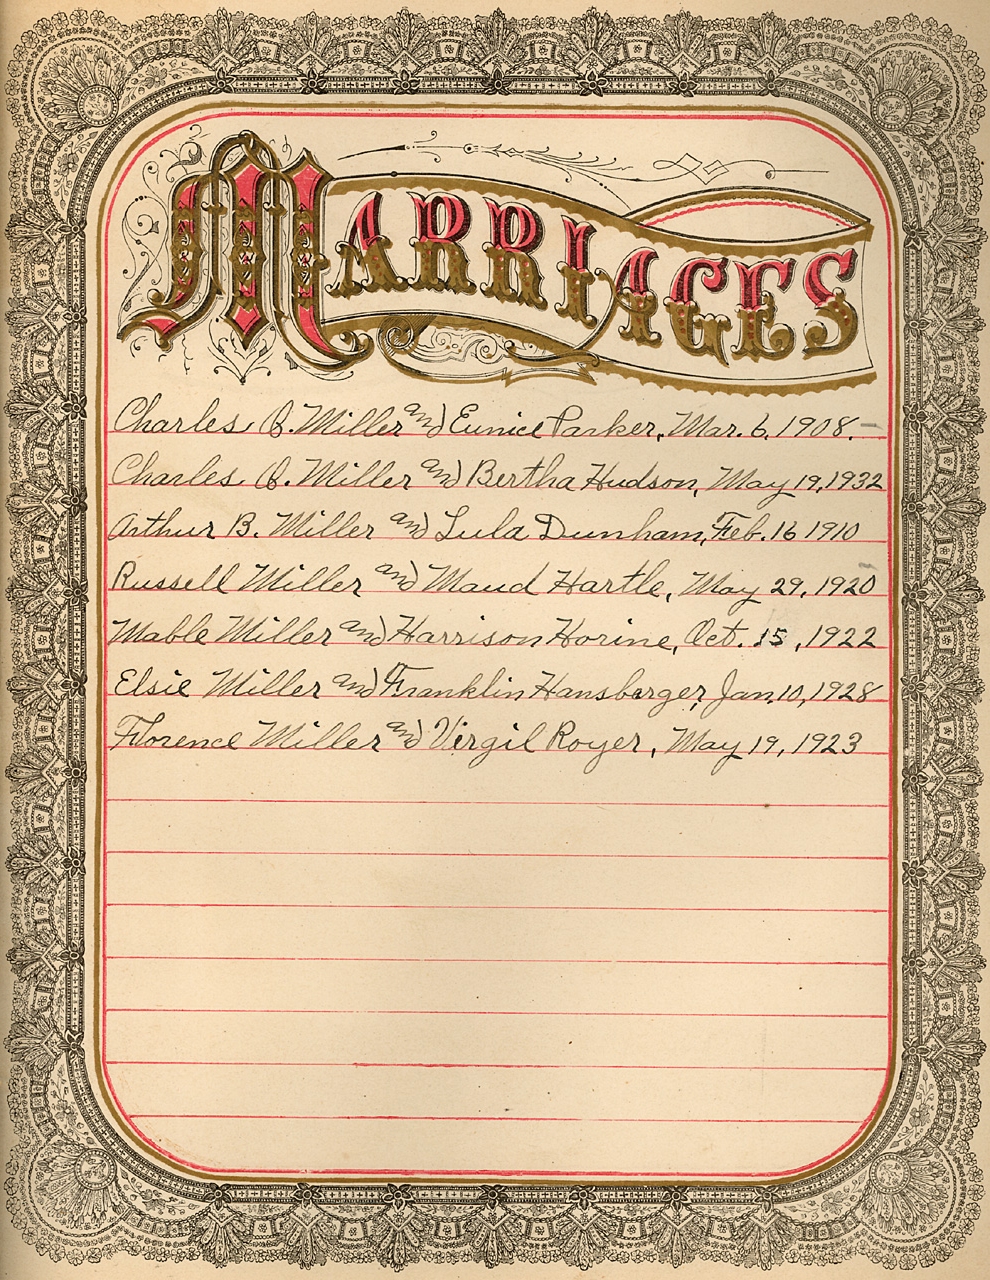 MARRIAGES
Charles O. Miller and Eunice Parker, Mar. 6, 1908.
Charles O. Miller and Bertha Hudson, May 19, 1932
Arthur B. Miller and Lula Dunham, Feb. 16 1910
Russell Miller and Maud Hartle, May 29, 1920
Mable Miller and Harrison Horine, Oct. 15, 1922
Elsie Miller and Franklin Hansbarger, Jan. 10, 1928
Florence Miller and Virgil Royer, May 19, 1923